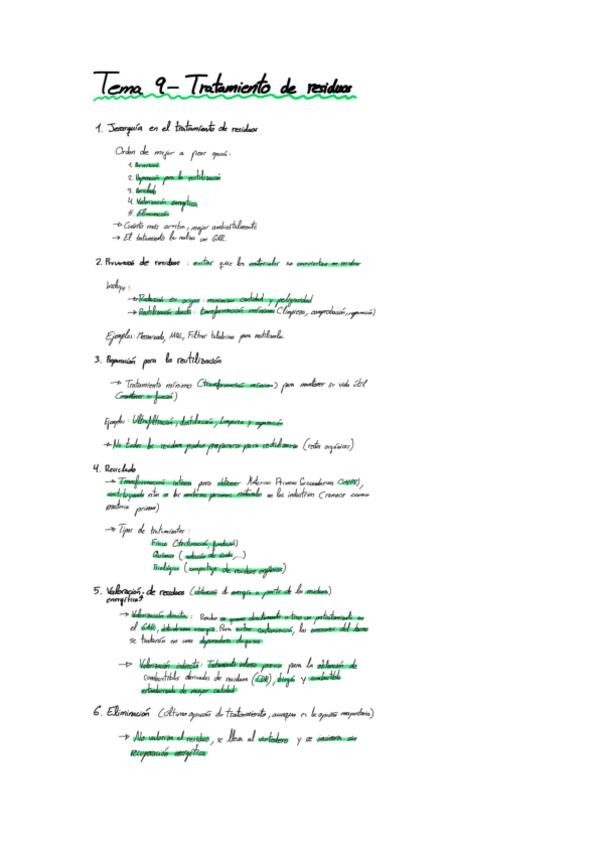 Tema 9 - Tratamiento de residuos
1. Jerarquía en el tratamiento de residuos
Orden de mejor a peor opción:
1. Prevención
2. Preparación para la reutilización
3. Reciclado
4. Valorización energética
5. Eliminación
→ Cuanto más arriba, mejor ambientalmente
→ El tratamiento lo realiza un
2. Prevención de residuos: evitar que los materiales se conviertan en residuo
Incluye:
→ Reducción en origen: minimizar cantidad y peligrosidad
→ Reutilización directa: transformación mínima (limpieza, comprobación, reparación)
Ejemplos: Filtrar para reutilizarla
3. Preparación para la reutilización
→ Tratamiento mínimo (transformación mínima) para mantener su vida útil
(mantiene su función)
Ejemplos: Ultrafiltración, destilación, limpieza y reparación
→ No todos los residuos pueden prepararse para reutilizarse (restos orgánicos)
4. Reciclado
→ Transformación intensa para obtener Materias Primas Secundarias (MPS),
materias primas naturales en las industrias (conoce como
materia prima)
→ Tipos de tratamientos:
Físico (trituración, fundición)
Químico (
Biológico (compostaje de residuos orgánicos)
5. Valoración de residuos (obtención de energía a partir de los residuos)
energética?
→ Valorización directa: Residuo se quema directamente o tras un pretratamiento en
el obteniéndose energía. Para evitar contaminación, las emisiones del horno
se tratarán en una depuradora de gases
→ Valorización indirecta: Tratamiento previo para la obtención de
combustibles derivados de residuos biogás y combustible
estandarizado de mayor calidad
6. Eliminación (última opción de tratamiento, aunque es la opción mayoritaria)
→ No valoriza el residuo, se lleva al vertedero y se incinera sin
recuperación energética